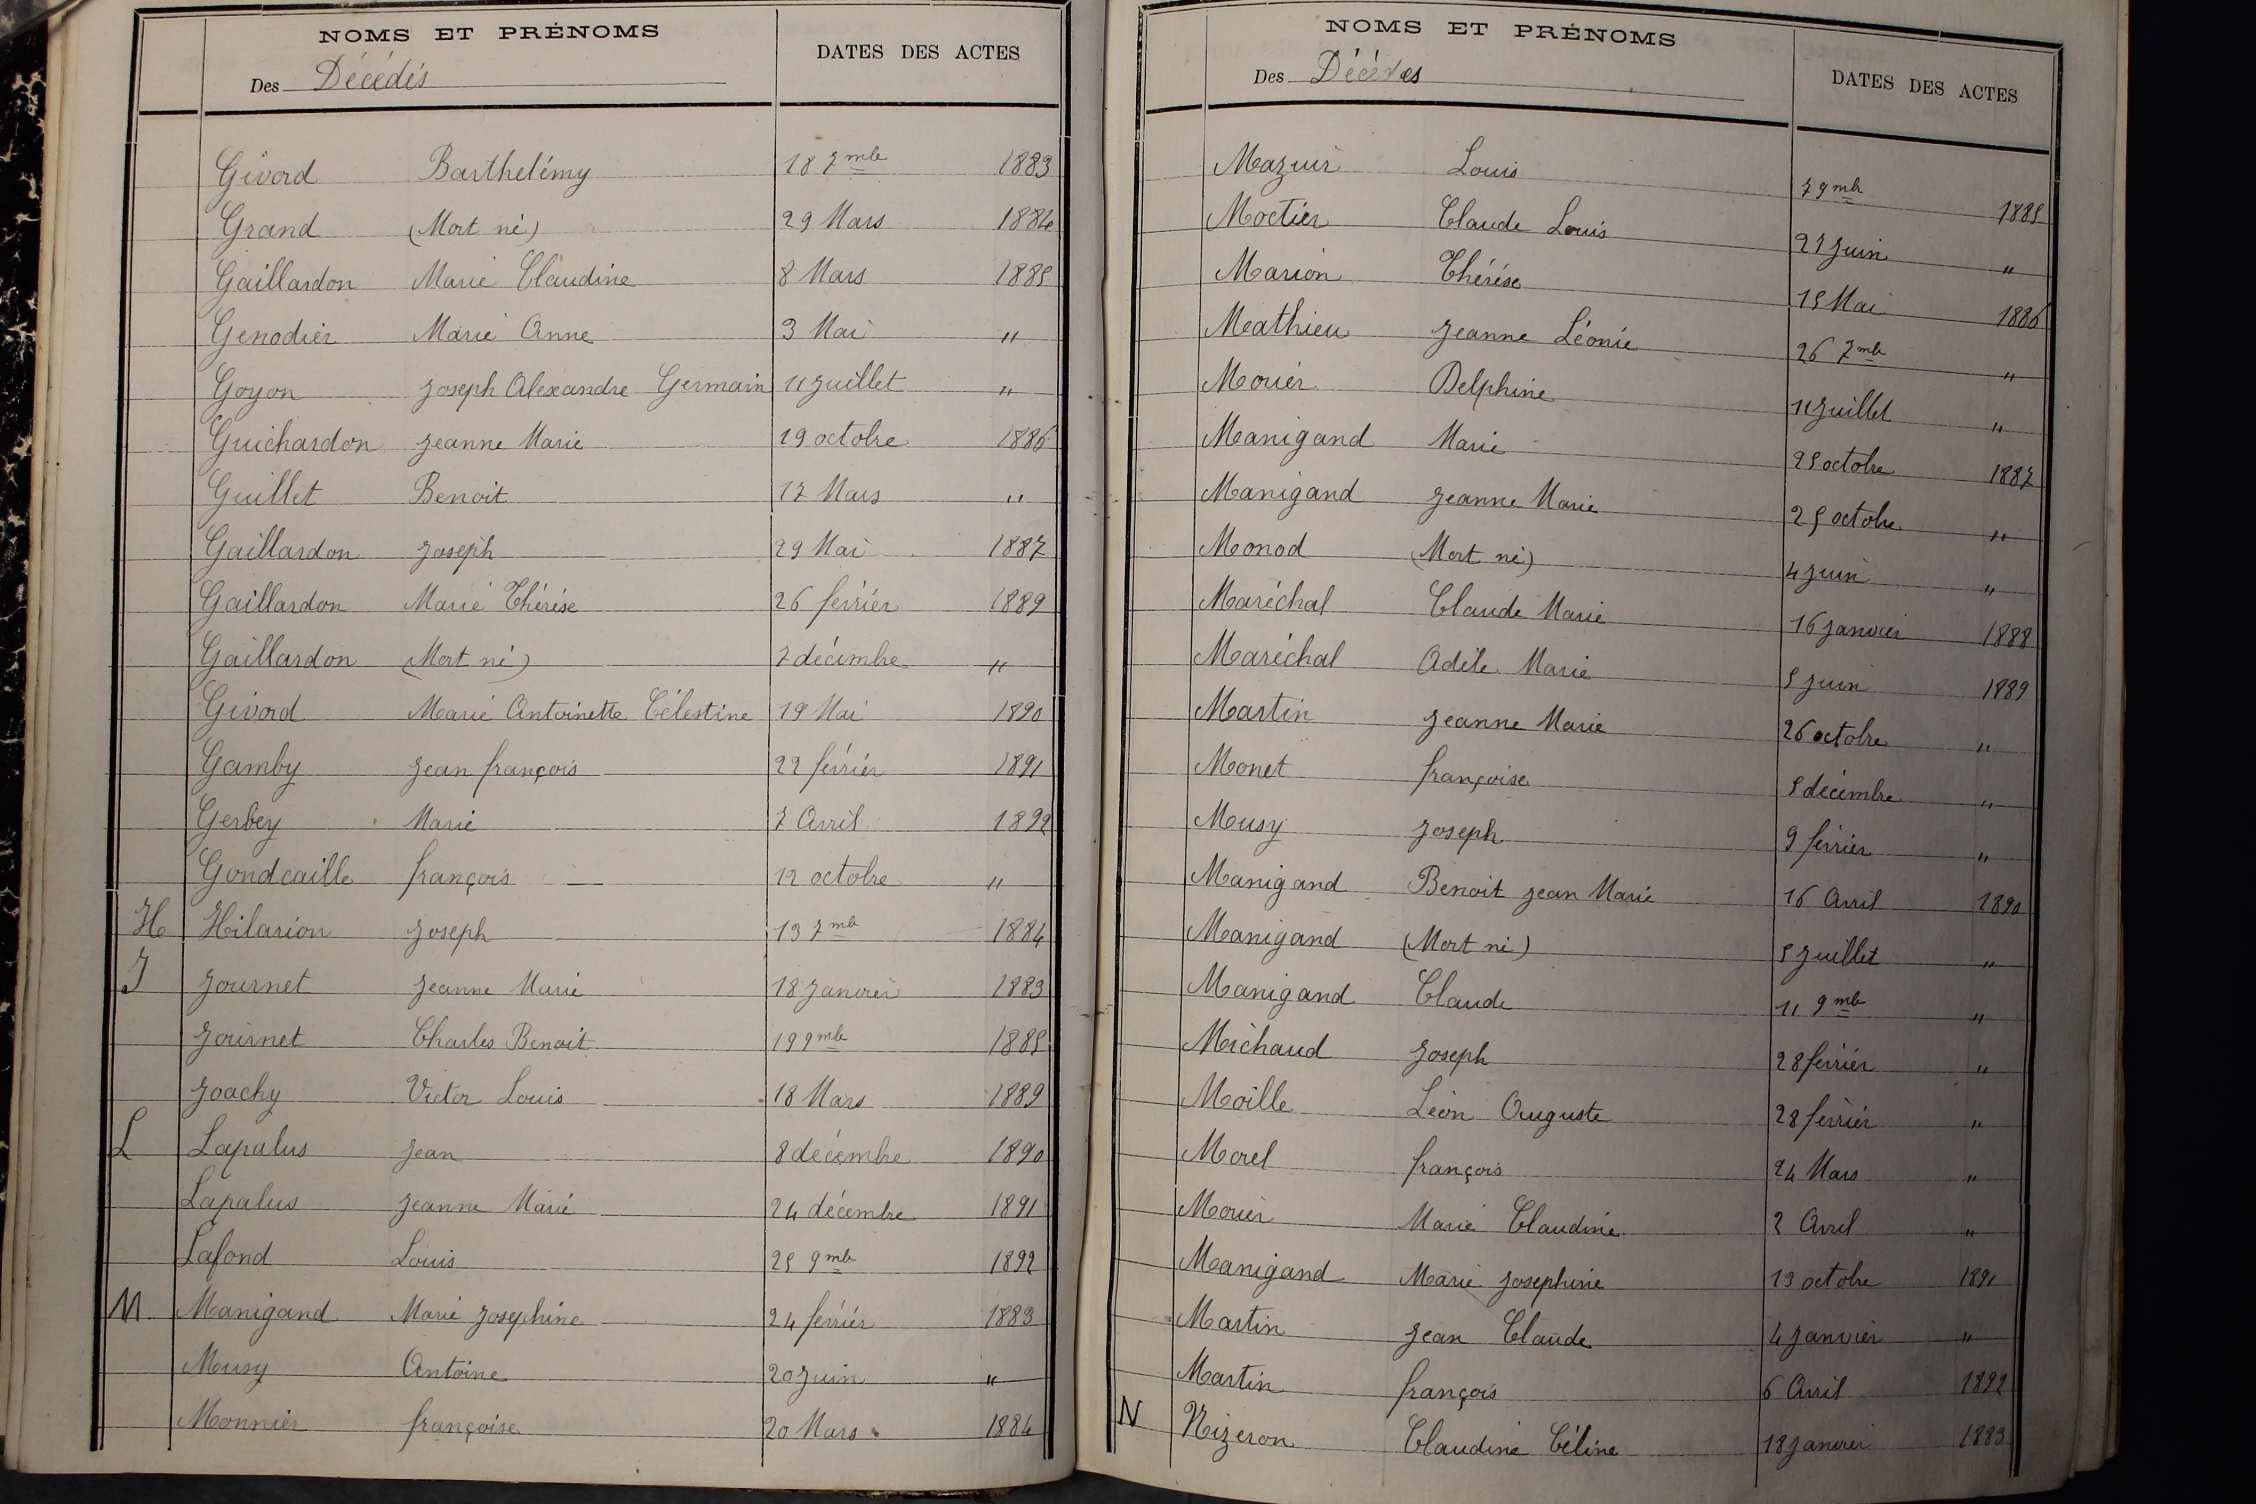 NOMS ET PRÉNOMS DATES DES ACTES
Des Décédés
Givord Barthelémy 18 7mbe 1883
Grand (Mort né) 29 Mars 1884
Gaillardon Marie Claudine 8 Mars 1885
Genodier Marie Anne 3 Mai "
Goyon Joseph Alexandre Germain 11 Juillet "
Guichardon Jeanne Marie 19 octobre 1886
Guillet Benoit 17 Mars "
Gaillardon Joseph 29 Mai 1887
Gaillardon Marie Thérése 26 février 1889
Gaillardon (Mort né) 7 décembre "
Givord Marie Antoinette Célestine 19 Mai 1890
Gamby Jean françois 22 février 1891
Gerbey Marie 7 Avril 1892
Gondcaille françois 12 octobre "
H Hilarion Joseph 13 7mbe 1884
J Journet Jeanne Marie 18 Janvier 1883
Journet Charles Benoit 19 9mbe 1885
Joachy Victor Louis 18 Mars 1889
L Lapalus Jean 8 décembre 1890
Lapalus Jeanne Marie 24 décembre 1891
Lafond Louis 25 9mbe 1892
M Manigand Marie Josephine 24 février 1883
Musy Antoine 20 Juin "
Monnier françoise 20 Mars 1884
NOMS ET PRÉNOMS DATES DES ACTES
Des Décédes
Mazuir Louis 7 9mbe 1885
Moctier Claude Louis 27 Juin "
Marion Thérése 15 Mai 1886
Mathieu Jeanne Léonie 26 7mbe "
Morier Delphine 11 Juillet "
Manigand Marie 25 octobre 1887
Manigand Jeanne Marie 25 octobre "
Monod (Mort né) 4 Juin "
Maréchal Claude Marie 16 Janvier 1888
Maréchal Adèle Marie 5 Juin 1889
Martin Jeanne Marie 26 octobre "
Monet françoise 5 décembre "
Musy Joseph 9 février "
Manigand Benoit Jean Marie 16 Avril 1890
Manigand (Mort né) 5 Juillet "
Manigand Claude 11 9mbe "
Michaud Joseph 28 février "
Moille Léon Auguste 28 février "
Morel françois 24 Mars "
Morier Marie Claudine 2 Avril "
Manigand Marie Josephine 13 octobre 1891
Martin Jean Claude 4 Janvier "
Martin françois 6 Avril 1892
N Nizeron Claudine Céline 18 Janvier 1883